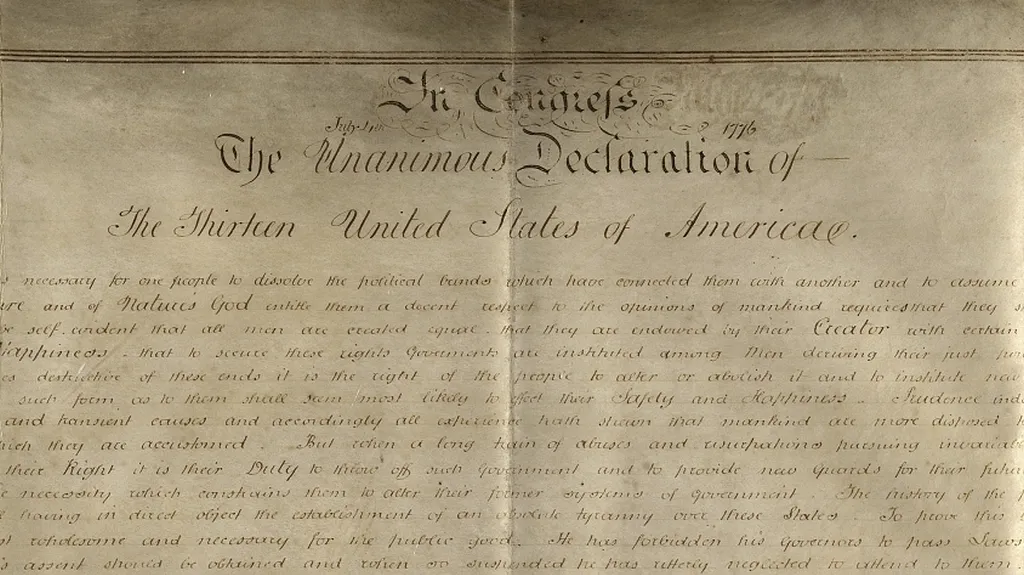 In Congress
July 4th 1776
The Unanimous Declaration of
The Thirteen United States of America.
s necessary for one people to dissolve the political bands which have connected them with another and to assume
ure and of Natures God entitle them a decent respect to the opinions of mankind requires that they s
be self-evident that all men are created equal. that they are endowed by their Creator with certain
Happiness. that to secure these rights Goverments are instituted among Men deriving their just pow
es destructive of these ends it is the right of the people to alter or abolish it and to institute new
such form as to them shall seem most likely to effect their Safety and Happiness. Prudence ind
and transient causes and accordingly all experience hath shewn that mankind are more disposed t
hich they are accustomed. But when a long train of abuses and usurpations pursuing invariab
their Right it is their Duty to throw off such Government and to provide new Guards for their futur
e necessity which constrains them to alter their former systems of Government. The history of the p
l having in direct object the establishment of an absolute tyranny over these States. To prove this
st wholesome and necessary for the public good. He has forbidden his Governors to pass Laws
s assent should be obtained and when so suspended he has utterly neglected to attend to them.